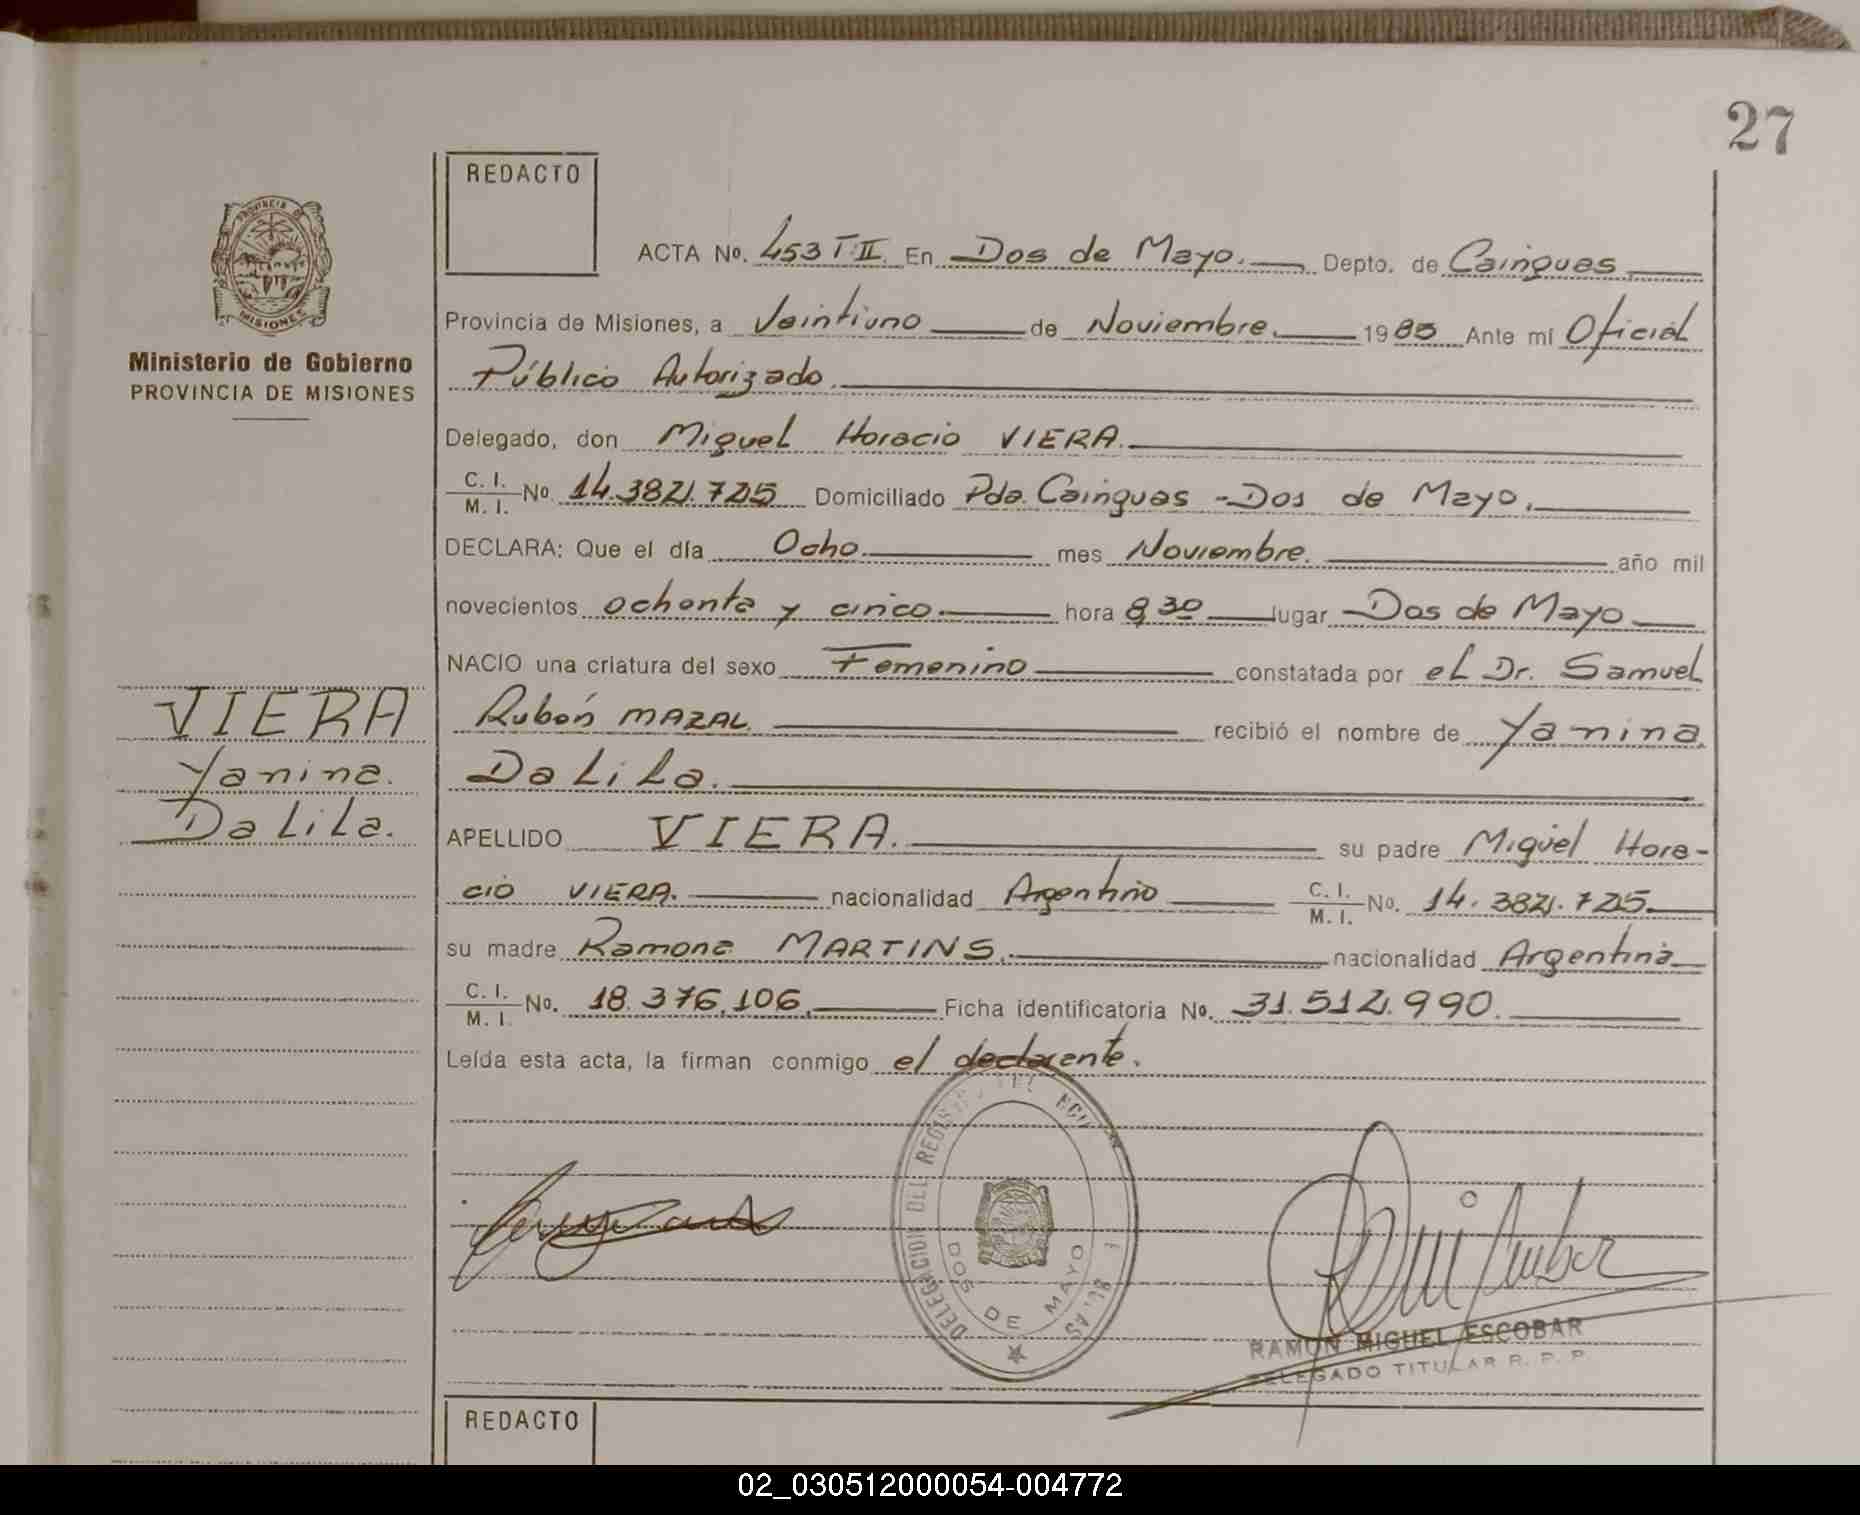 27
REDACTO
PROVINCIA DE
MISIONES
Ministerio de Gobierno
PROVINCIA DE MISIONES
ACTA Nº. 453 T:II. En Dos de Mayo. Depto. de Cainguas
Provincia de Misiones, a Veintiuno de Noviembre. 1985 Ante mí Oficial
Público Autorizado.
Delegado, don Miguel Horacio VIERA.
C. I.
M. I. Nº 14.382.725 Domiciliado Pda. Cainguas - Dos de Mayo.
DECLARA: Que el día Ocho. mes Noviembre. año mil
novecientos ochenta y cinco. hora 8,30 lugar Dos de Mayo
NACIO una criatura del sexo Femenino constatada por el Dr. Samuel
Rubén MAZAL. recibió el nombre de Yanina
Dalila.
APELLIDO VIERA. su padre Miguel Hora-
cio VIERA. nacionalidad Argentino C. I.
M. I. Nº. 14.382.725.
su madre Ramona MARTINS. nacionalidad Argentina
C. I.
M. I. Nº. 18.376.106. Ficha identificatoria Nº. 31.512.990.
Leída esta acta, la firman conmigo el declarante.
VIERA
Yanina.
Dalila.
DELEGACION DEL
DOS DE MAYO
RAMON MIGUEL ESCOBAR
DELEGADO TITULAR R. P. P.
REDACTO
02_030512000054-004772